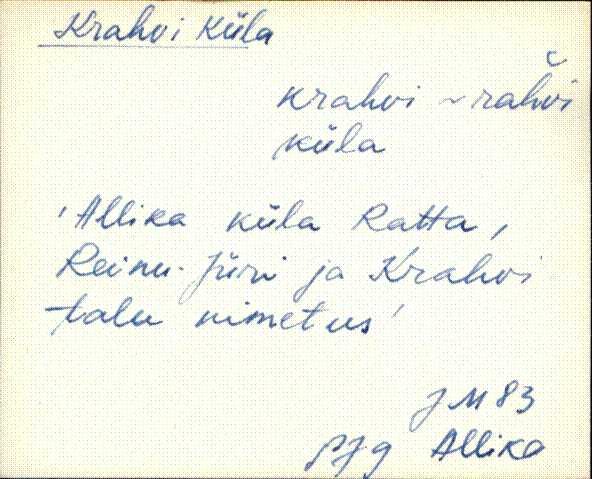 Krahvi Küla
krahvi ~ rahvi
küla
'Allika küla Ratta,
Reinu-Jüri ja Krahvi
talu nimetus'
JM 83
PJg Allika